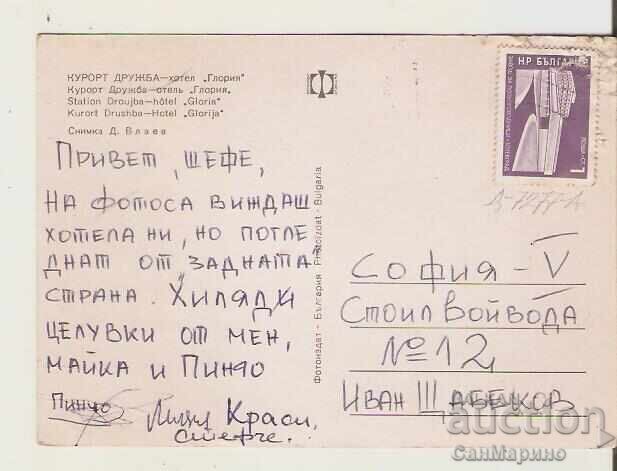 КУРОРТ ДРУЖБА—хотел „Глория"
Курорт Дружба—отель „Глория„
Station Droujba—hôtel „Gloria"
Kurort Drushba—Hotel „Glorija"
Снимка Д. Влаев
ПРИВЕТ, ШЕФЕ,
НА ФОТОСА ВИЖДАШ
ХОТЕЛА НИ, НО ПОГЛЕ
ДНАТ ОТ „ЗАДНАТА"
СТРАНА. ХИЛЯДИ
ЦЕЛУВКИ ОТ МЕН,
МАЙКА И ПИНЧО
Пинчо
Краси,
Фотоиздат - България Photoizdat - Bulgaria
НР БЪЛГАРИЯ
1
СОФИЯ - V
СТОИЛ ВОЙВОДА
№ 12
ИВАН
auction
СанМарино